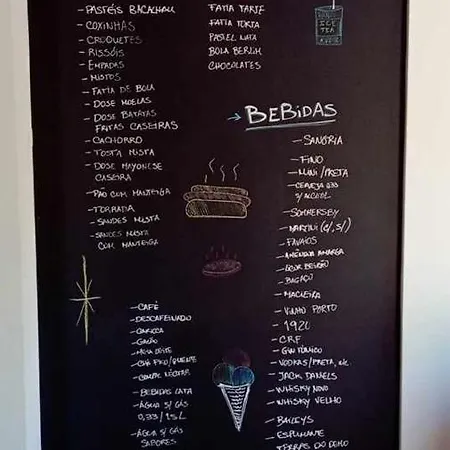 - PASTÉIS BACALHAU
- COXINHAS
- CROQUETES
- RISSÓIS
- EMPADAS
- MISTOS
- FATIA DE BOLA
- DOSE MOELAS
- DOSE BATATAS
FRITAS CASEIRAS
- CACHORRO
- TOSTA MISTA
- DOSE MAYONESE
CASEIRA
- PÃO COM MANTEIGA
- TORRADA
- SANDES MISTA
- SANDES MISTA
COM MANTEIGA
FATIA TARTE
FATIA TORTA
PASTEL NATA
BOLA BERLIM
CHOCOLATES
ICE
TEA
→ BEBIDAS
- SANGRIA
- FINO
- MINI/PRETA
- CERVEJA
S/ALCOOL
- SOMMERSBY
- MARTINI (C/, S/)
- FAVAIOS
- AMÊNDOA AMARGA
- LICOR BEIRÃO
- BAGAÇO
- MACIEIRA
- VINHO PORTO
- 1920
- CRF
- GIN TÓNICO
- VODKAS/PRETA, etc.
- JACK DANIELS
- WHISKY NOVO
- WHISKY VELHO
- BAILEYS
- ESPUMANTE
TERRAS DO DEMO
- CAFÉ
- DESCAFEINADO
- CARIOCA
- GALÃO
- MEIA LEITE
- CHÁ FRIO/QUENTE
- COMPAL NÉCTAR
- BEBIDAS LATA
- ÁGUA S/ GÁS
0,33 / 1,5 L
- ÁGUA S/ GÁS
SABORES